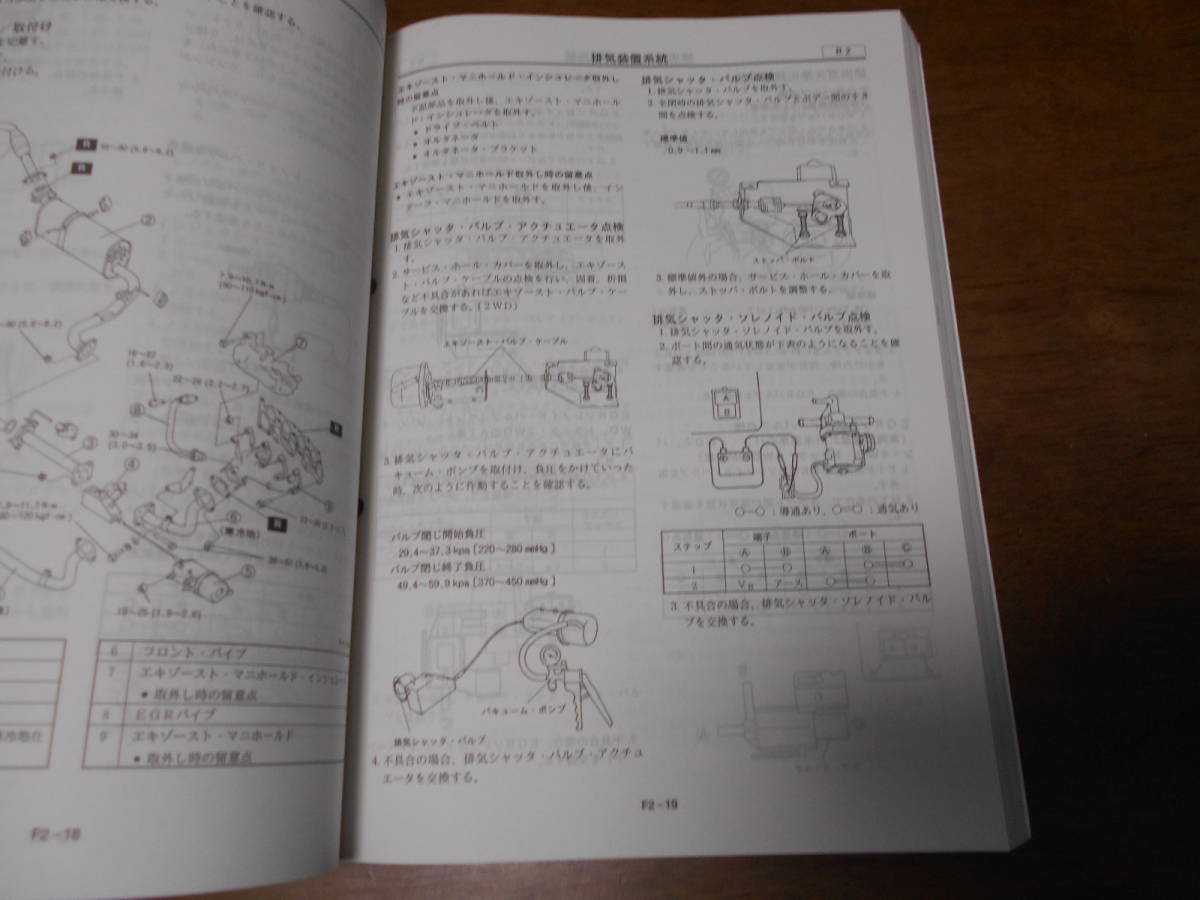 を確認する。
／取付け
を切離す。
付ける。
R
R
②
7.8〜10.7N·m
{80〜110kgf-cm}
⑦
16〜22
{1.6〜2.3}
22〜26 {2.2〜2.7}
⑧
30〜34
{3.0〜3.5}
③
④
R
⑥
(寒冷地)
R
⑤
6 フロント・パイプ
7 エキゾースト・マニホールド・インシュレータ
● 取外し時の留意点
8 EGRパイプ
9 エキゾースト・マニホールド
● 取外し時の留意点
F2−18
排気装置系統
R2
エキゾースト・マニホールド・インシュレータ取外し
時の留意点
下記部品を取外し後、エキゾースト・マニホール
ド・インシュレータを取外す。
● ドライブ・ベルト
● オルタネータ
● オルタネータ・ブラケット
エキゾースト・マニホールド取外し時の留意点
● エキゾースト・マニホールドを取外し後、イン
テーク・マニホールドを取外す。
排気シャッタ・バルブ・アクチュエータ点検
1. 排気シャッタ・バルブ・アクチュエータを取外
す。
2. サービス・ホール・カバーを取外し、エキゾース
ト・バルブ・ケーブルの点検を行い、固着、折損
など不具合があればエキゾースト・バルブ・ケー
ブルを交換する。(2WD)
エキゾースト・バルブ・ケーブル
3. 排気シャッタ・バルブ・アクチュエータにバ
キューム・ポンプを取付け、負圧をかけていった
時、次のように作動することを確認する。
バルブ閉じ開始負圧
29.4〜37.3 kpa {220〜280 mmHg}
バルブ閉じ終了負圧
49.4〜59.9 kpa {370〜450 mmHg}
バキューム・ポンプ
排気シャッタ・バルブ
4. 不具合の場合、排気シャッタ・バルブ・アクチュ
エータを交換する。
排気シャッタ・バルブ点検
1. 排気シャッタ・バルブを取外す。
2. 全閉時の排気シャッタ・バルブとボデー間のすき
間を点検する。
標準値
0.9〜1.1 mm
ストッパ・ボルト
3. 標準値外の場合、サービス・ホール・カバーを取
外し、ストッパ・ボルトを調整する。
排気シャッタ・ソレノイド・バルブ点検
1. 排気シャッタ・ソレノイド・バルブを取外す。
2. ポート間の通気状態が下表のようになることを確
認する。
A
B
○─○：導通あり、○═○：通気あり
ステップ 端子 ポート
Ⓐ Ⓑ Ⓐ Ⓑ Ⓒ
1 ○ ○ ○═○
2 VB アース ○═○
3. 不具合の場合、排気シャッタ・ソレノイド・バル
ブを交換する。
F2−19